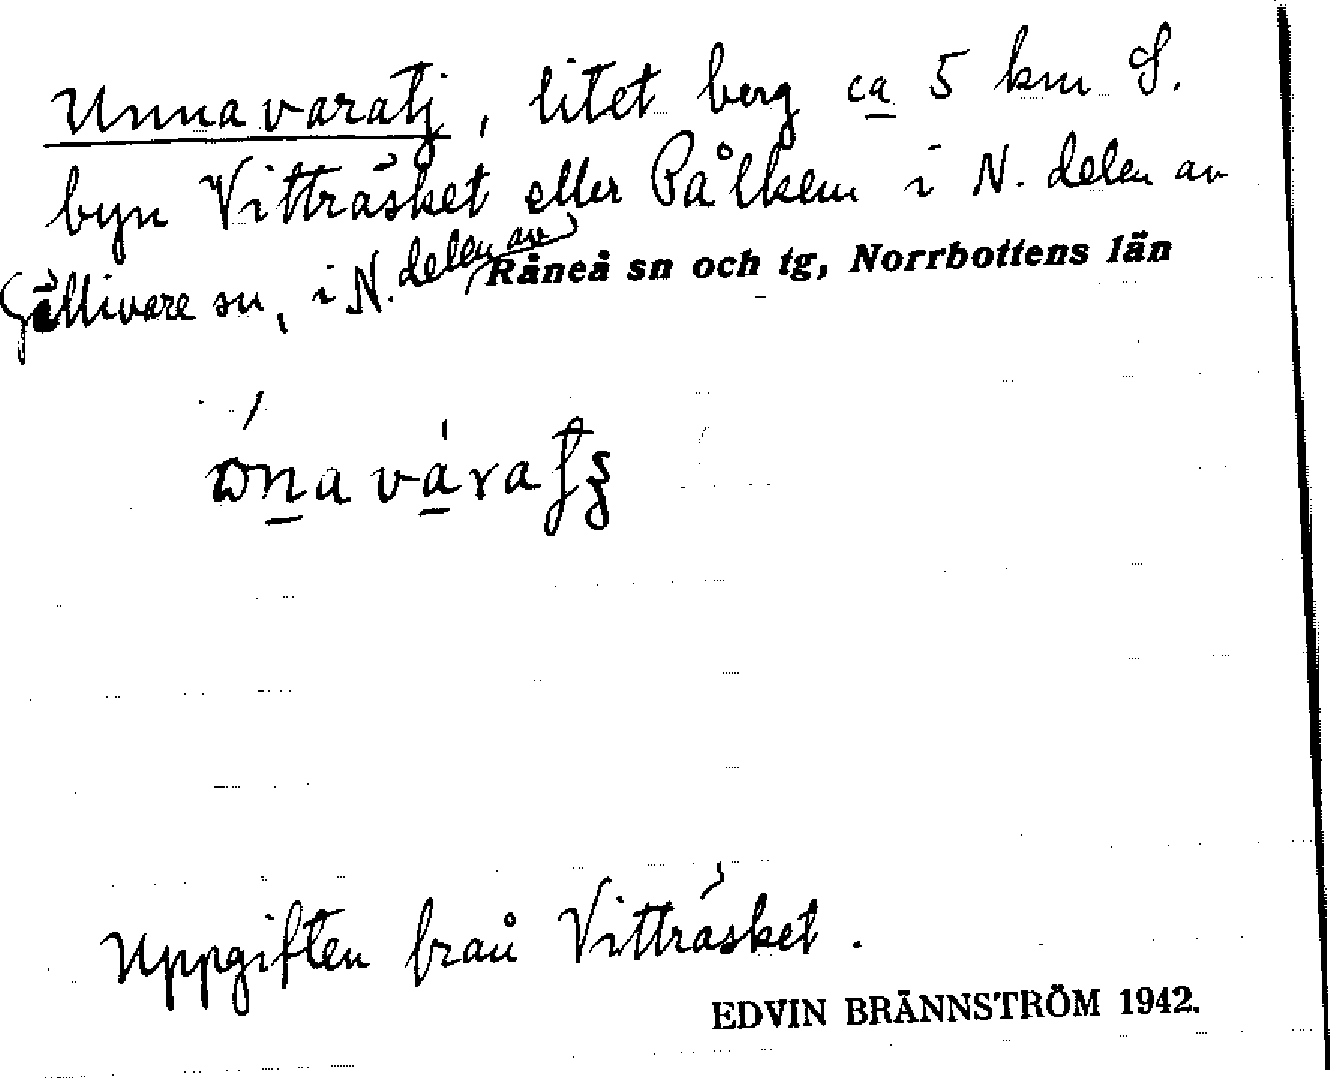 Unnavaratj, litet berg ca 5 km S.
byn Vitträsket eller Pålkem i N. delen av
Gällivare sn, i N. delen av Råneå sn och tg, Norrbottens län
Uppgiften från Vitträsket.
EDVIN BRÄNNSTRÖM 1942.